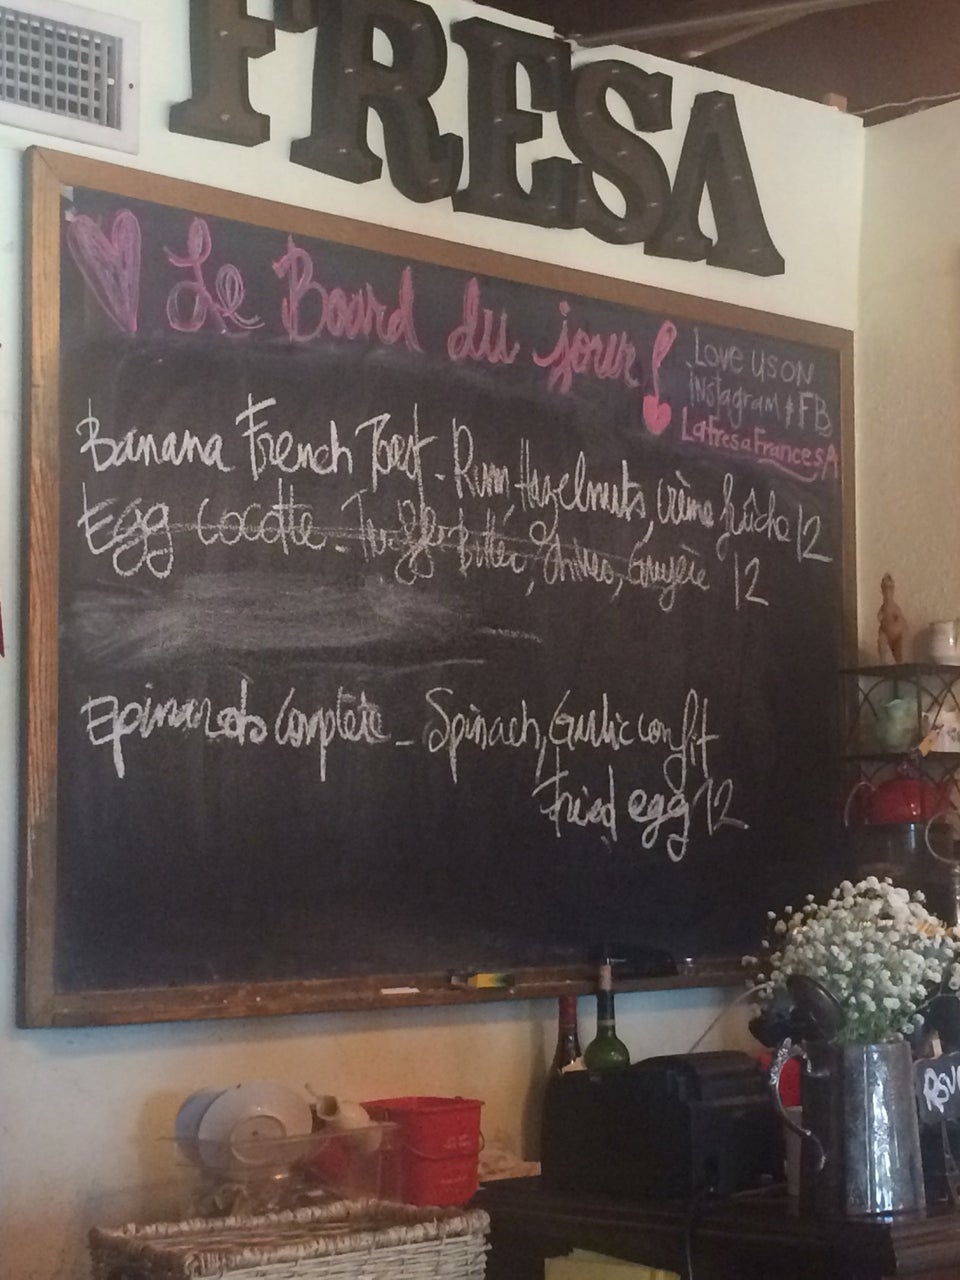 FRESA
Le Board du jour!
Love us on
instagram & FB
LafresaFrancesA
Banana French Toast - Rum, Hazelnuts, Crème fraîche 12
Egg Cocotte - Truffle Butter, Chives, Gruyère 12
Epinards Complète - Spinach, Garlic confit
Fried egg 12